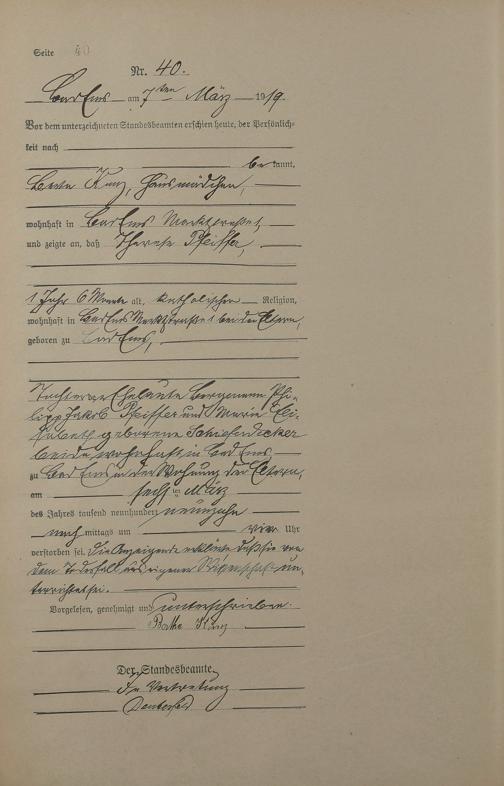 Seite 40
Nr. 40.
Bad Ems am 7ten März 1919.
Vor dem unterzeichneten Standesbeamten erschien heute, der Persönlich-
keit nach
bekannt,
Kunz, Hausmädchen,
wohnhaft in Bad Ems Marktstraße 1,
und zeigte an, daß Therese Pfeiffer,
1 Jahr 6 Monate alt, katholischer Religion,
wohnhaft in Bad Ems Marktstraße 1 bei den Eltern,
geboren zu Bad Ems,
Tochter der Eheleute Bergmann Phi-
lipp Jakob Pfeiffer und Maria Eli-
sabeth geborene Schieferdecker
beide wohnhaft in Bad Ems
zu Bad Ems in der Wohnung der Eltern,
am sechsten März
des Jahres tausend neunhundert neunzehn
nach mittags um vier Uhr
verstorben sei. Die Anzeigende erklärte, daß sie von
dem Todesfall aus eigener Wissenschaft un-
terrichtet sei.
Vorgelesen, genehmigt und unterschrieben.
Kunz
Der Standesbeamte
In Vertretung